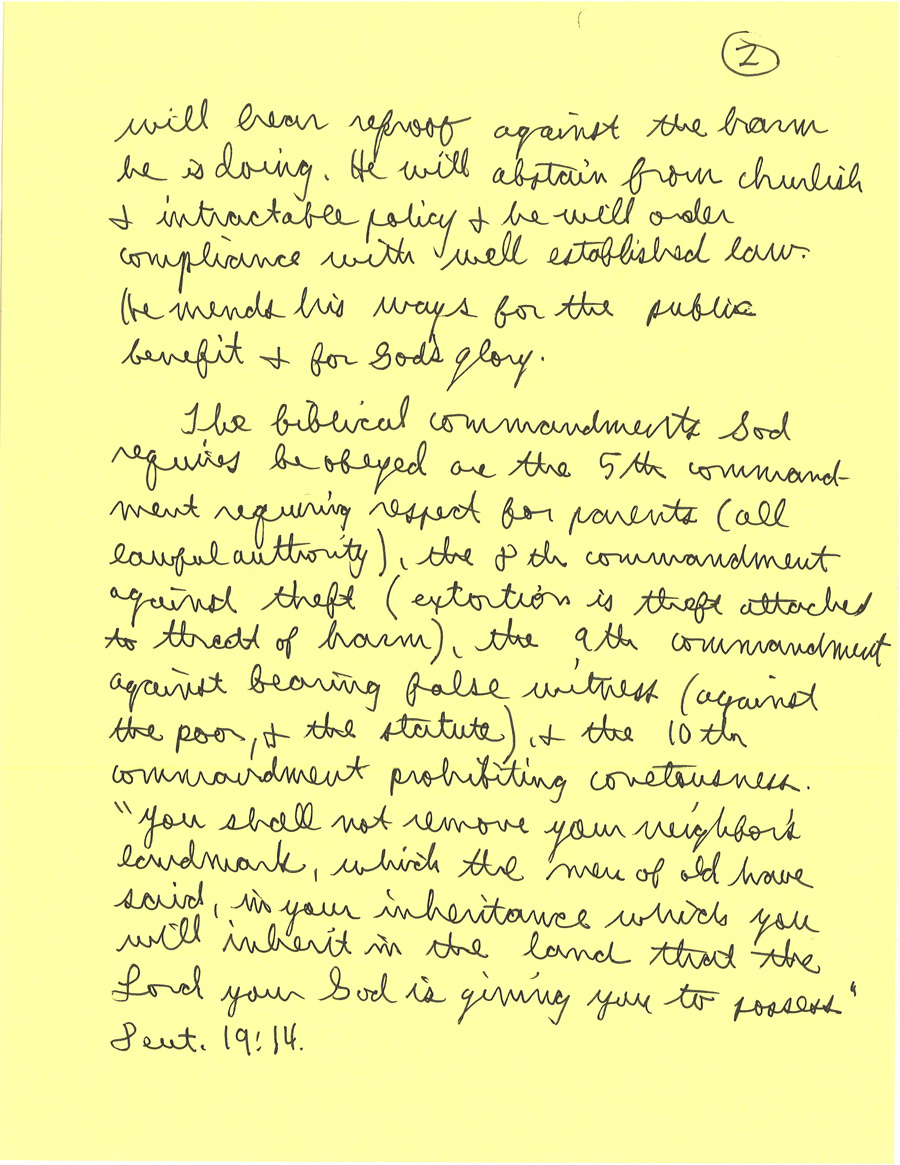 2
will hear reproof against the harm
he is doing. He will abstain from churlish
& intractable policy & he will order
compliance with well established law.
He mends his ways for the public
benefit & for God's glory.
The biblical commandments God
requires be obeyed are the 5th command-
ment requiring respect for parents (all
lawful authority), the 8th commandment
against theft (extortion is theft attached
to threat of harm), the 9th commandment
against bearing false witness (against
the poor, & the statute), & the 10th
commandment prohibiting covetousness.
"You shall not remove your neighbor's
landmark, which the men of old have
said, in your inheritance which you
will inherit in the land that the
Lord your God is giving you to possess"
Deut. 19:14.